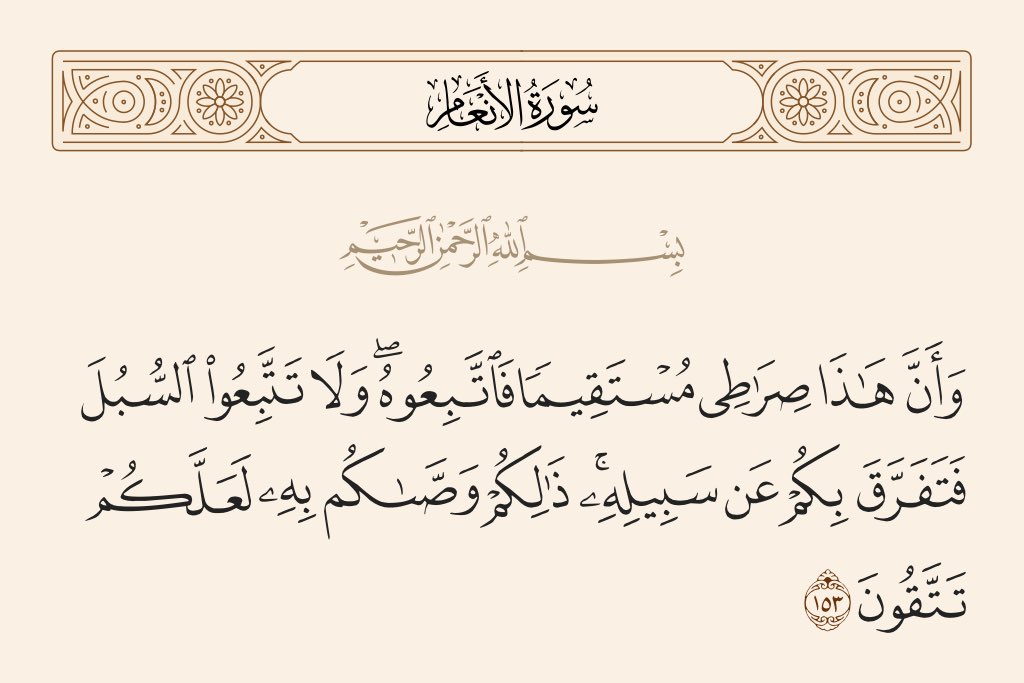 سُورَةُ الأَنْعَامِ
بِسْمِ ٱللَّهِ ٱلرَّحْمَٰنِ ٱلرَّحِيمِ
وَأَنَّ هَـٰذَا صِرَٰطِى مُسْتَقِيمًا فَٱتَّبِعُوهُ ۖ وَلَا تَتَّبِعُوا۟ ٱلسُّبُلَ
فَتَفَرَّقَ بِكُمْ عَن سَبِيلِهِۦ ۚ ذَٰلِكُمْ وَصَّىٰكُم بِهِۦ لَعَلَّكُمْ
تَتَّقُونَ ١٥٣